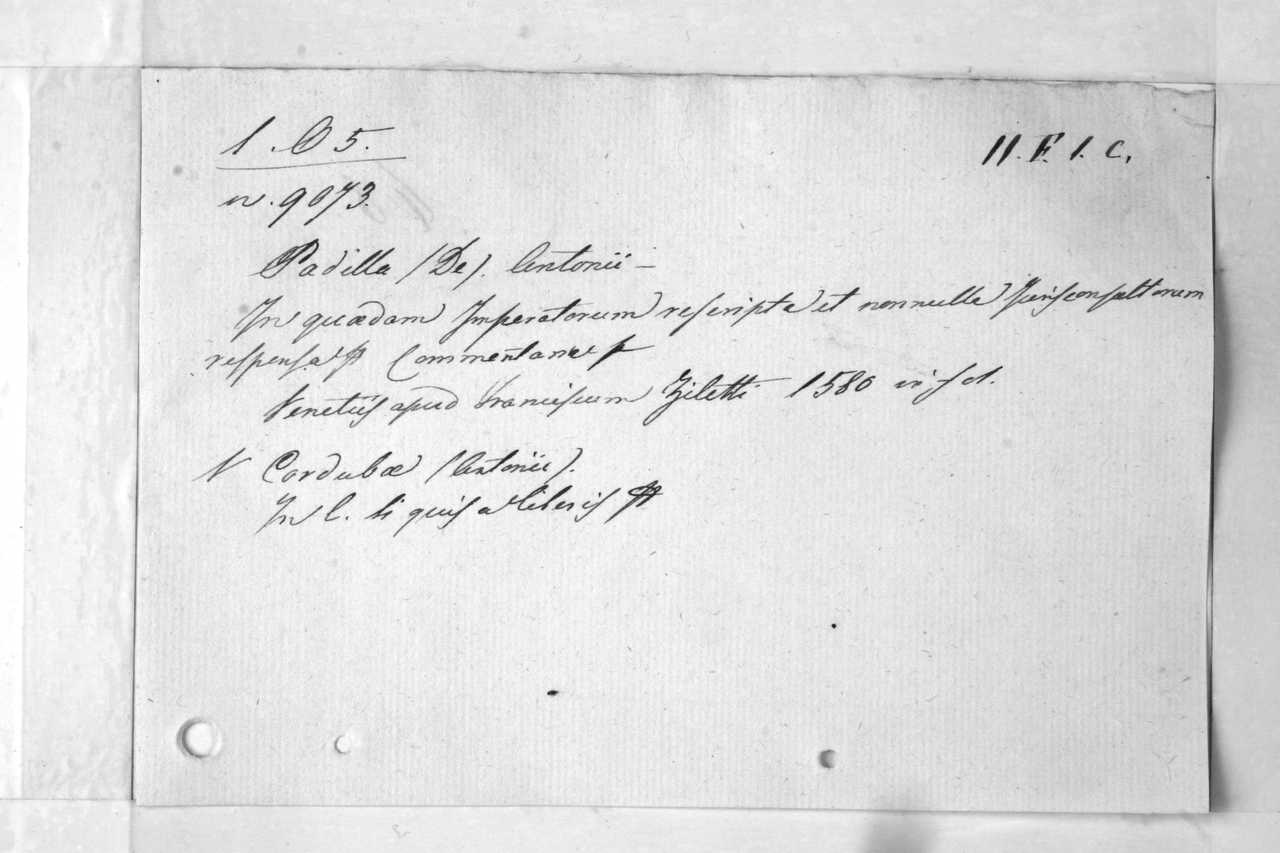 1. O 5.
II. F. 1. C.
n. 9073.
Padilla (De). Antonii —
In quædam Imperatorum rescripta et nonnulla Jurisconsultorum
responsa Commentaria
Venetiis apud Franciscum Ziletti 1580 in fol.
V Cordubæ (Antonii).
In l. si quis a liberis